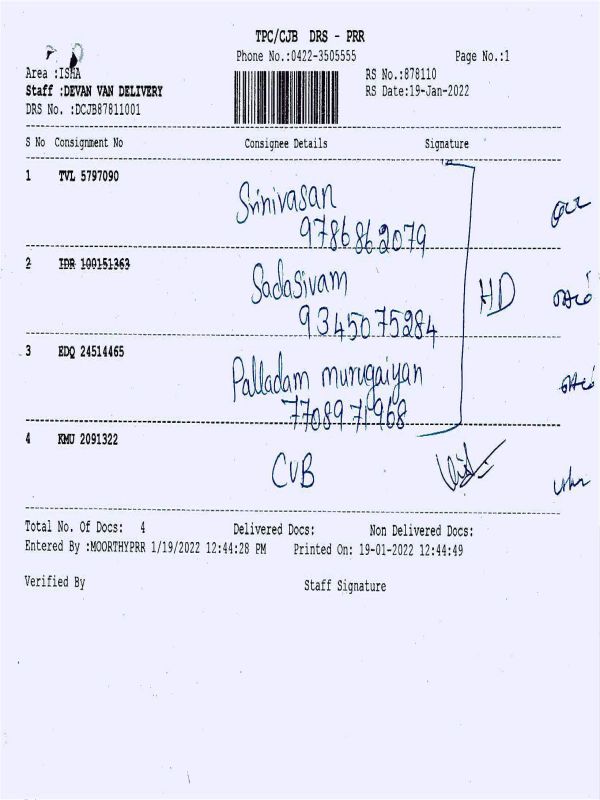 TPC/CJB DRS - PRR
Phone No.:0422-3505555 Page No.:1
Area :ISHA RS No.:878110
Staff :DEVAN VAN DELIVERY RS Date:19-Jan-2022
DRS No. :DCJB87811001
S No Consignment No Consignee Details Signature
1 TVL 5797090
Srinivasan
9786862079
2 IDR 100151363
Sadasivam
9345075284
HD
3 EDQ 24514465
Palladam murugaiyan
7708971968
4 KMU 2091322
CVB
Total No. Of Docs: 4 Delivered Docs: Non Delivered Docs:
Entered By :MOORTHYPRR 1/19/2022 12:44:28 PM Printed On: 19-01-2022 12:44:49
Verified By Staff Signature